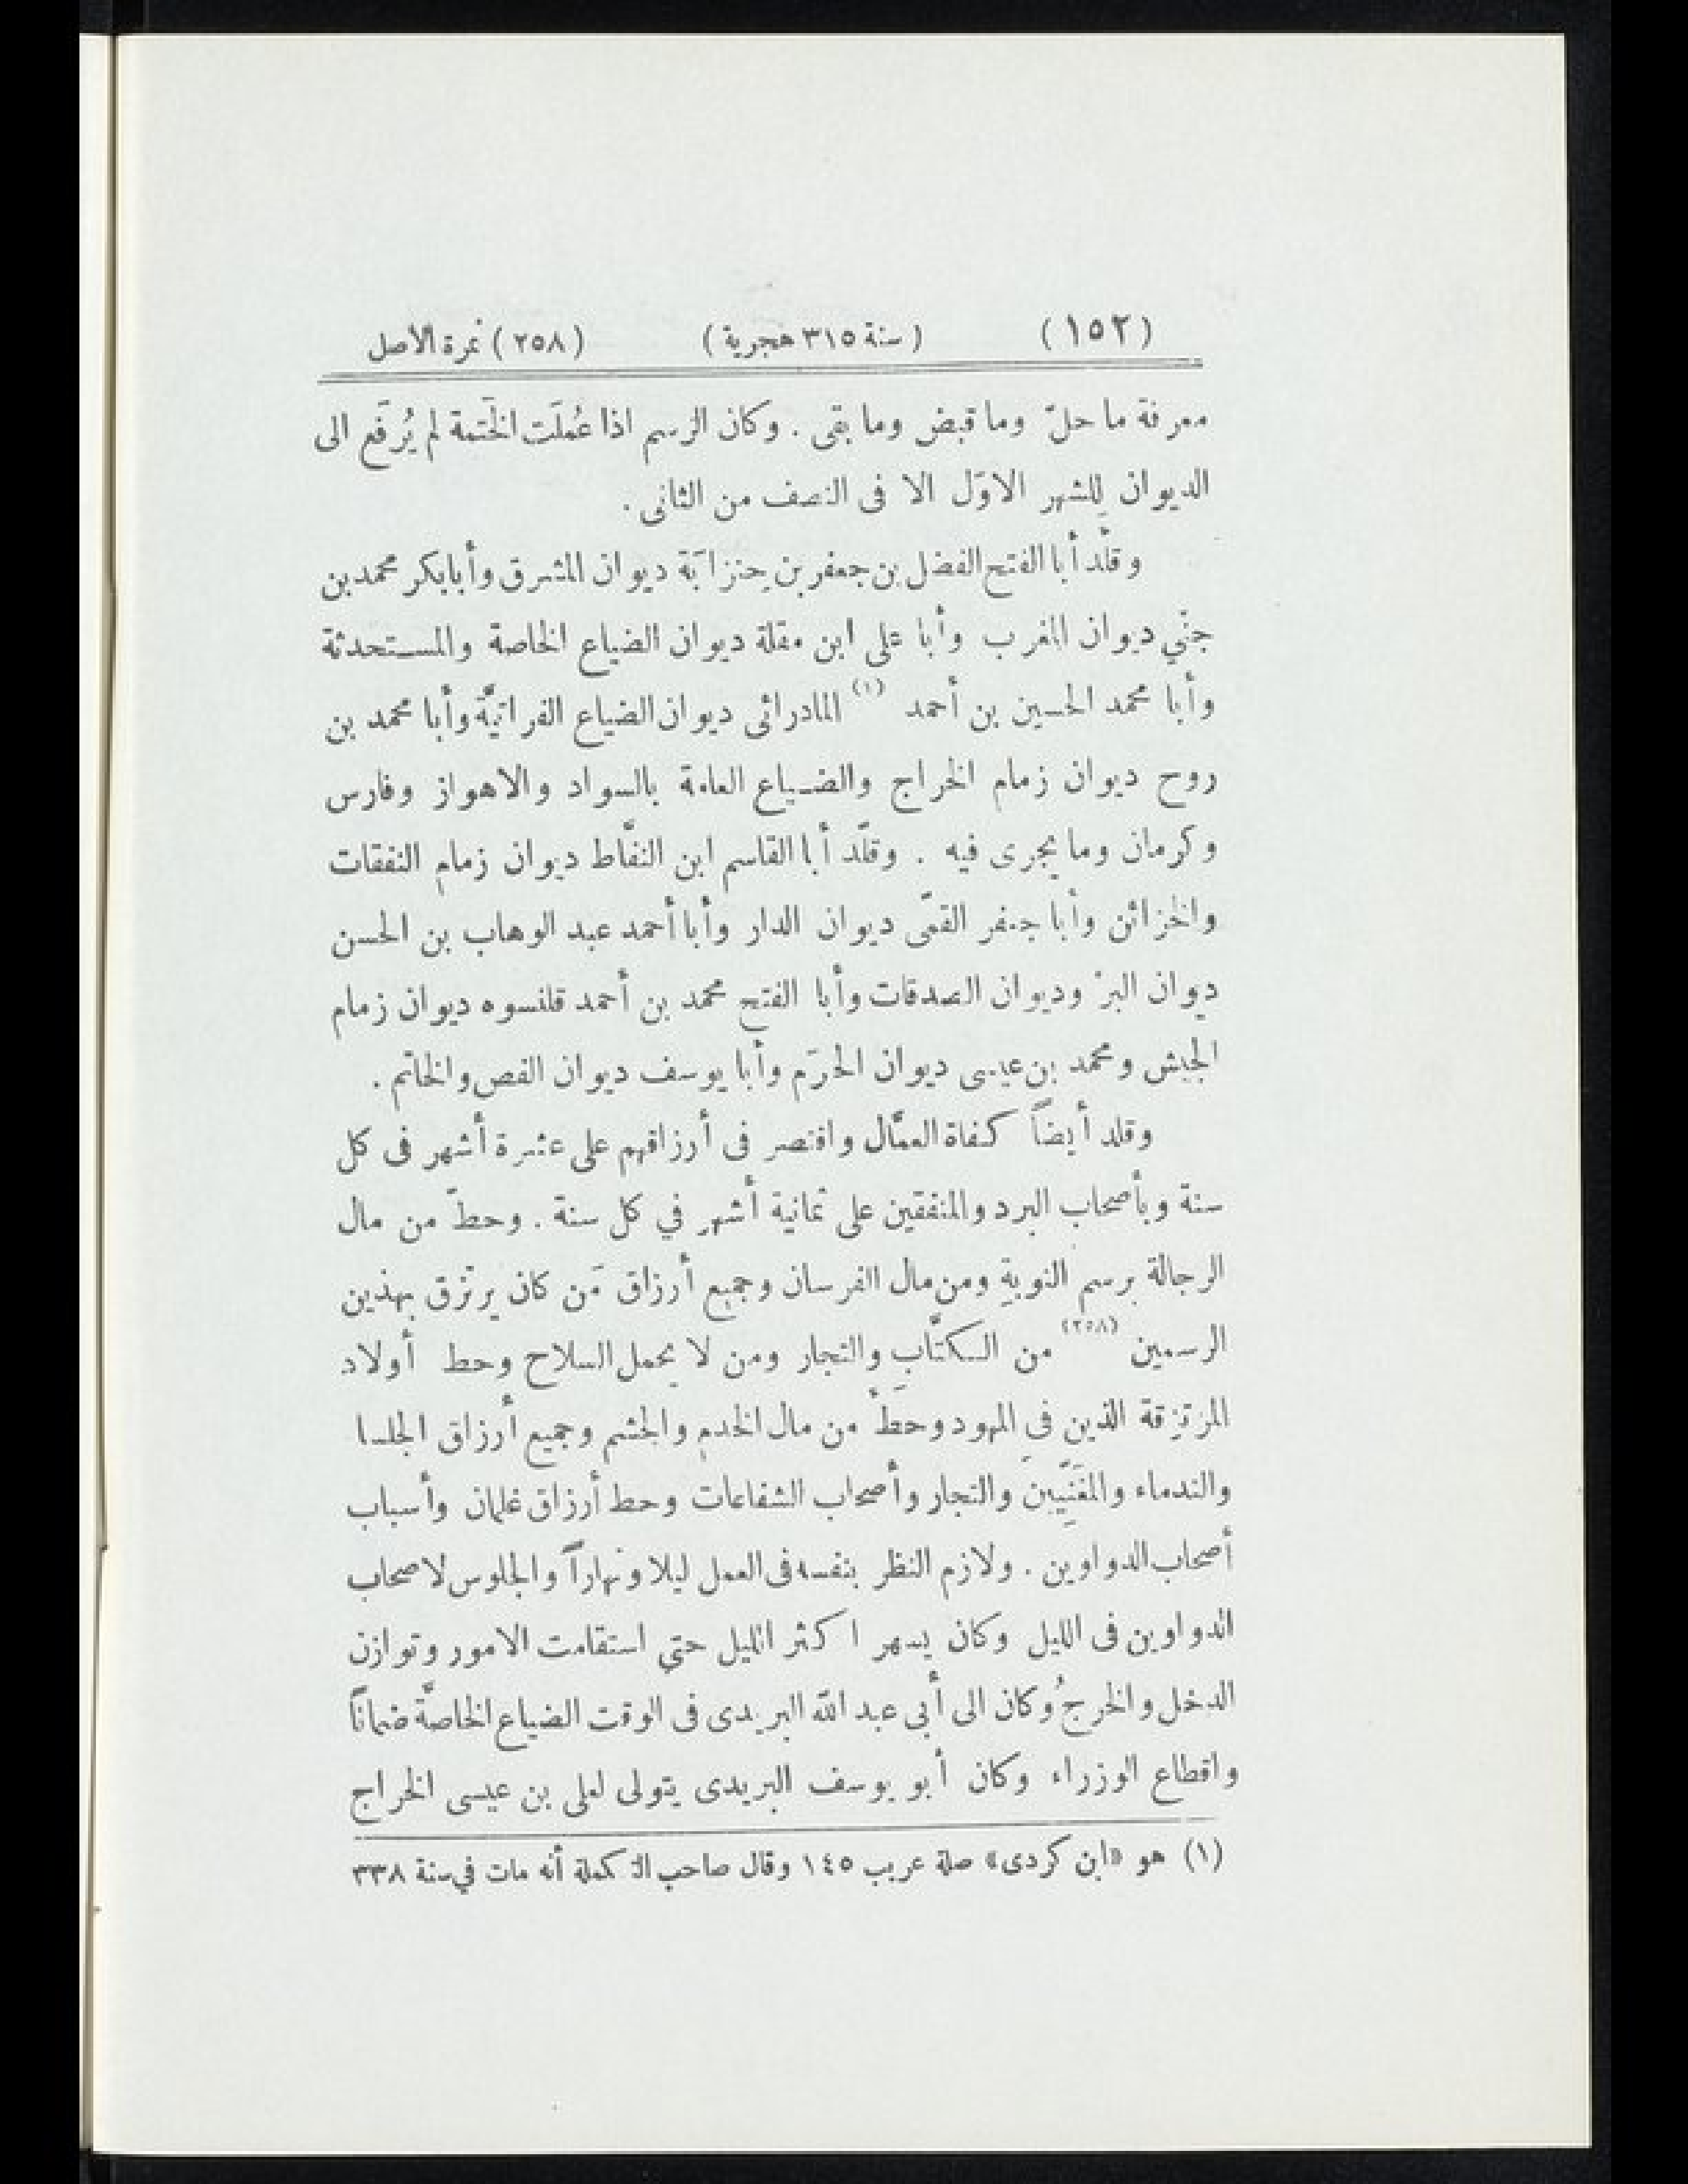 (١٥٢) (سنة ٣١٥ هجرية) (٢٥٨) نمرة الأصل
معرفة ما حلّ وما قبض وما بقى . وكان الرسم اذا عُملَت الخَتمة لم يُرفَع الى
الديوان لِلشهر الاوّل الا فى النصف من الثانى .
وقلّد أبا الفتح الفضل بن جعفر بن حِنزابَة ديوان المشرق وأبابكر محمد بن
جنّي ديوان المغرب وأبا على ابن مقلة ديوان الضياع الخاصة والمستحدثة
وأبا محمد الحسين بن أحمد (١) المادرائى ديوان الضياع الفراتيّة وأبا محمد بن
روح ديوان زمام الخراج والضياع العامة بالسواد والاهواز وفارس
وكرمان وما يجرى فيه . وقلّد أبا القاسم ابن النفّاط ديوان زمام النفقات
والخزائن وأبا جعفر القمّى ديوان الدار وأبا أحمد عبد الوهاب بن الحسن
ديوان البرّ وديوان الصدقات وأبا الفتح محمد بن أحمد قلنسوه ديوان زمام
الجيش ومحمد بن عيسى ديوان الحرَم وأبا يوسف ديوان الفص والخاتم .
وقلد أيضاً كفاة العمّال واقتصر فى أرزاقهم على عشرة أشهر فى كل
سنة وبأصحاب البرد والمنفقين على ثمانية أشهر في كل سنة . وحطّ من مال
الرجالة برسم النوبةِ ومن مال الفرسان وجميع أرزاق مَن كان يرتزق بهذين
الرسمين (٢٥٨) من الكتّابِ والتجار ومن لا يحمل السلاح وحط أولاد
المرتزقة الذين في المهود وحطّ من مال الخدمِ والحشم وجميع أرزاق الجلسا
والندماء والمغَنّيِينَ والتجار وأصحاب الشفاعات وحط أرزاق غلمان وأسباب
أصحاب الدواوين . ولازم النظر بنفسه فى العمل ليلا ونهاراً والجلوس لاصحاب
الدواوين فى الليل وكان يسهر اكثر الليل حتى استقامت الامور وتوازن
الدخل والخرجُ وكان الى أبى عبد الله البريدى فى الوقت الضياع الخاصّة ضماناً
واقطاع الوزراء وكان أبو يوسف البريدى يتولى لعلى بن عيسى الخراج
(١) هو «ابن كردى» صلة عريب ١٤٥ وقال صاحب التكملة أنه مات في سنة ٣٣٨